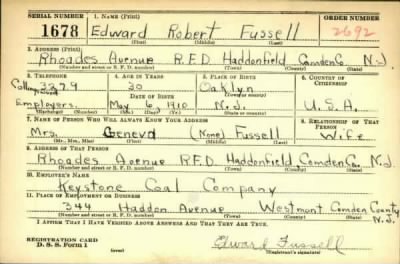 SERIAL NUMBER 1. NAME (Print) ORDER NUMBER
1678 Edward Robert Fussell 2692
(First) (Middle) (Last)
2. ADDRESS (Print)
Rhoades Avenue R.F.D. Haddonfield Camden Co. N.J.
(Number and street or R. F. D. number) (Town) (County) (State)
3. TELEPHONE 4. AGE IN YEARS 5. PLACE OF BIRTH 6. COUNTRY OF CITIZENSHIP
3379 30 Oaklyn
DATE OF BIRTH (Town or county)
Employers. May 6, 1910 N.J. U.S.A.
(Exchange) (Number) (Mo.) (Day) (Yr.) (State or country)
7. NAME OF PERSON WHO WILL ALWAYS KNOW YOUR ADDRESS 8. RELATIONSHIP OF THAT PERSON
Mrs. Geneva (None) Fussell Wife
(Mr., Mrs., Miss) (First) (Middle) (Last)
9. ADDRESS OF THAT PERSON
Rhoades Avenue R.F.D. Haddonfield Camden Co. N.J.
(Number and street or R. F. D. number) (Town) (County) (State)
10. EMPLOYER'S NAME
Keystone Coal Company
11. PLACE OF EMPLOYMENT OR BUSINESS
344 Haddon Avenue Westmont Camden County N.J.
(Number and street or R. F. D. number) (Town) (County) (State)
I AFFIRM THAT I HAVE VERIFIED ABOVE ANSWERS AND THAT THEY ARE TRUE.
REGISTRATION CARD
D. S. S. Form 1 (over) Edward Fussell
(Registrant's signature)